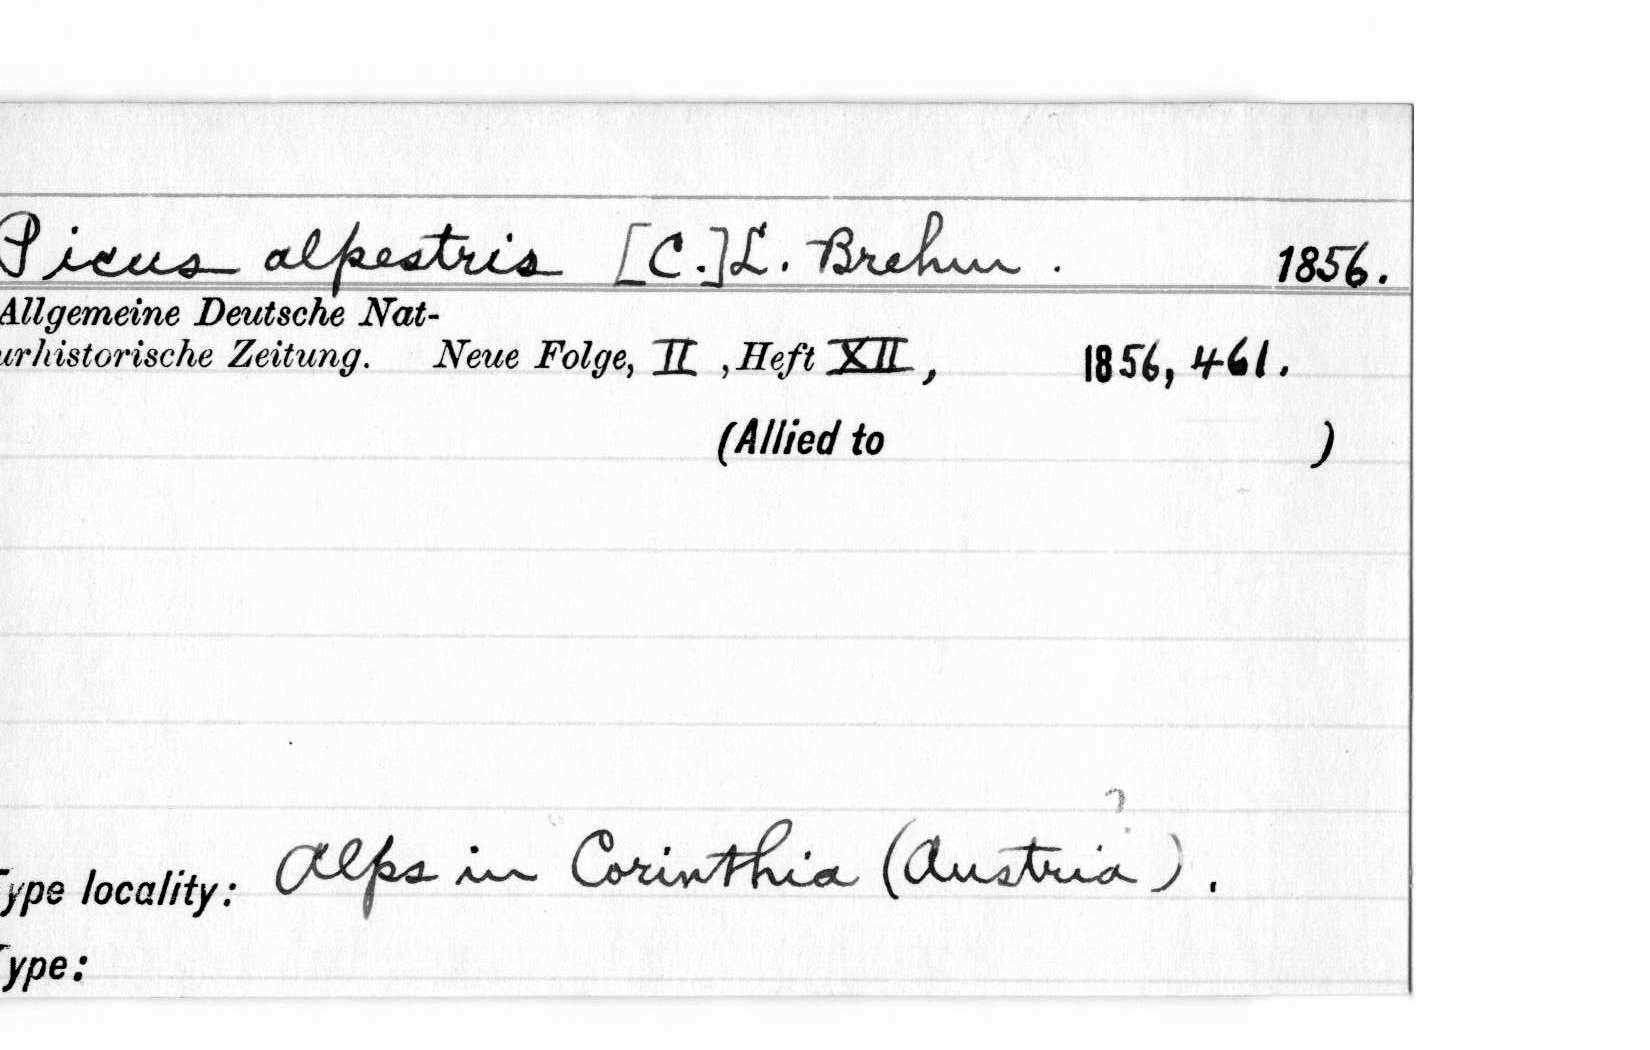 Picus alpestris [C.] L. Brehm. 1856.
Allgemeine Deutsche Nat-
urhistorische Zeitung. Neue Folge, II, Heft XII, 1856, 461.
(Allied to )
?
Type locality: Alps in Corinthia (Austria).
Type: